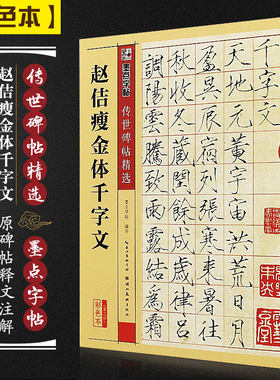 色本】
传世碑帖精选
赵佶瘦金体千字文
墨点字帖
原碑帖释文注解
墨点字帖
传世碑帖精选
赵佶瘦金体千字文
彩色本
千字文
天地玄黃宇宙洪荒日月
盈昃辰宿列張寒來暑往
秋收冬藏閏餘成歲律呂
調陽雲騰致雨露結為霜